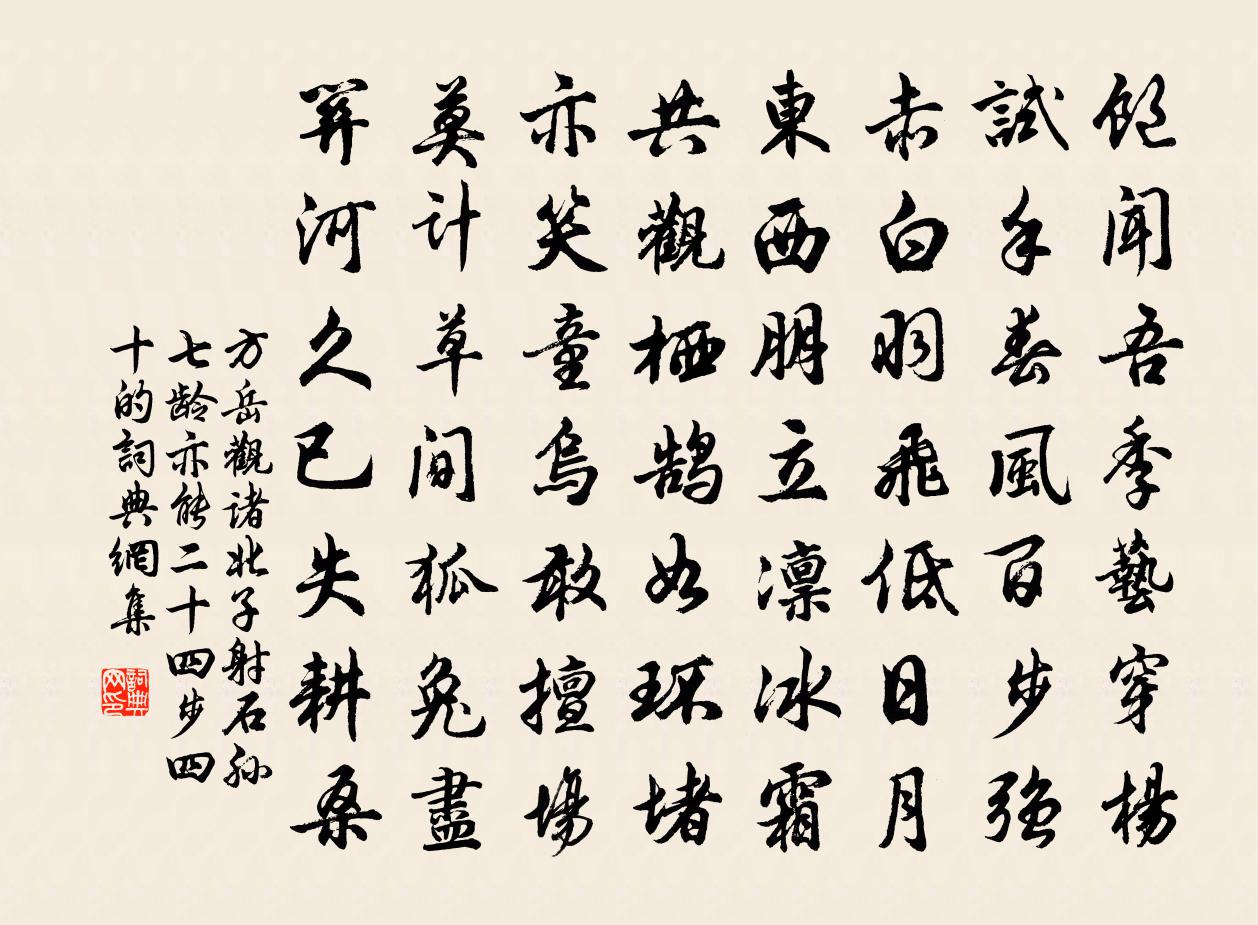 飽聞吾季藝穿楊
試手春風百步強
赤白羽飛低日月
東西朋立凛冰霜
共觀栖鵠如環堵
亦笑童烏敢擅場
莫計草間狐兔盡
關河久已失耕桑
方岳觀諸北子射石孙
七龄亦能二十四步四
十的詞典網集
詞典网印